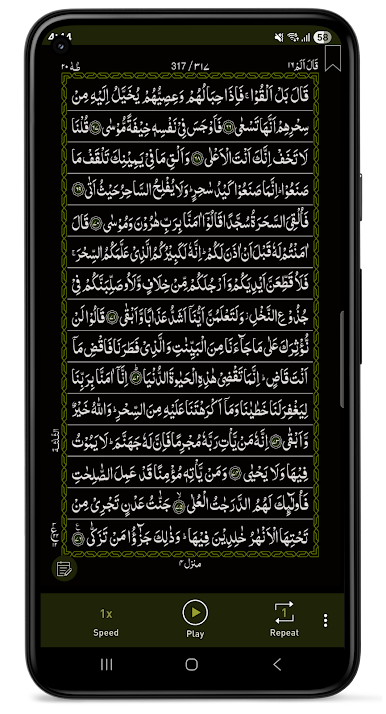 4:44 58
طٰهٰ ٢٠ 317 / ٣١٧ قَالَ اَلَمْ ١٦
قَالَ بَلْ اَلْقُوْا ۚ فَاِذَا حِبَالُهُمْ وَعِصِيُّهُمْ يُخَيَّلُ اِلَيْهِ مِنْ
سِحْرِهِمْ اَنَّهَا تَسْعٰى ﴿٦٦﴾ فَاَوْجَسَ فِيْ نَفْسِهٖ خِيْفَةً مُّوْسٰى ﴿٦٧﴾ قُلْنَا
لَا تَخَفْ اِنَّكَ اَنْتَ الْاَعْلٰى ﴿٦٨﴾ وَاَلْقِ مَا فِيْ يَمِيْنِكَ تَلْقَفْ مَا
صَنَعُوْا ۗ اِنَّمَا صَنَعُوْا كَيْدُ سٰحِرٍ ۗ وَلَا يُفْلِحُ السَّاحِرُ حَيْثُ اَتٰى ﴿٦٩﴾
فَاُلْقِيَ السَّحَرَةُ سُجَّدًا قَالُوْٓا اٰمَنَّا بِرَبِّ هٰرُوْنَ وَمُوْسٰى ﴿٧٠﴾ قَالَ
اٰمَنْتُمْ لَهٗ قَبْلَ اَنْ اٰذَنَ لَكُمْ ۗ اِنَّهٗ لَكَبِيْرُكُمُ الَّذِيْ عَلَّمَكُمُ السِّحْرَ ۚ
فَلَاُقَطِّعَنَّ اَيْدِيَكُمْ وَاَرْجُلَكُمْ مِّنْ خِلَافٍ وَّلَاُوصَلِّبَنَّكُمْ فِيْ
جُذُوْعِ النَّخْلِ ۡ وَلَتَعْلَمُنَّ اَيُّنَآ اَشَدُّ عَذَابًا وَّاَبْقٰى ﴿٧١﴾ قَالُوْا لَنْ
نُّؤْثِرَكَ عَلٰى مَا جَآءَنَا مِنَ الْبَيِّنٰتِ وَالَّذِيْ فَطَرَنَا فَاقْضِ مَآ
اَنْتَ قَاضٍ ۗ اِنَّمَا تَقْضِيْ هٰذِهِ الْحَيٰوةَ الدُّنْيَا ﴿٧٢﴾ اِنَّآ اٰمَنَّا بِرَبِّنَا
لِيَغْفِرَ لَنَا خَطٰيٰنَا وَمَآ اَكْرَهْتَنَا عَلَيْهِ مِنَ السِّحْرِ ۗ وَاللّٰهُ خَيْرٌ
وَّاَبْقٰى ﴿٧٣﴾ اِنَّهٗ مَنْ يَّاْتِ رَبَّهٗ مُجْرِمًا فَاِنَّ لَهٗ جَهَنَّمَ ۗ لَا يَمُوْتُ
فِيْهَا وَلَا يَحْيٰى ﴿٧٤﴾ وَمَنْ يَّاْتِهٖ مُؤْمِنًا قَدْ عَمِلَ الصّٰلِحٰتِ
فَاُولٰٓئِكَ لَهُمُ الدَّرَجٰتُ الْعُلٰى ﴿٧٥﴾ جَنّٰتُ عَدْنٍ تَجْرِيْ مِنْ
تَحْتِهَا الْاَنْهٰرُ خٰلِدِيْنَ فِيْهَا ۗ وَذٰلِكَ جَزٰٓؤُا مَنْ تَزَكّٰى ﴿٧٦﴾
منزل ٤
1x 1
Speed Play Repeat